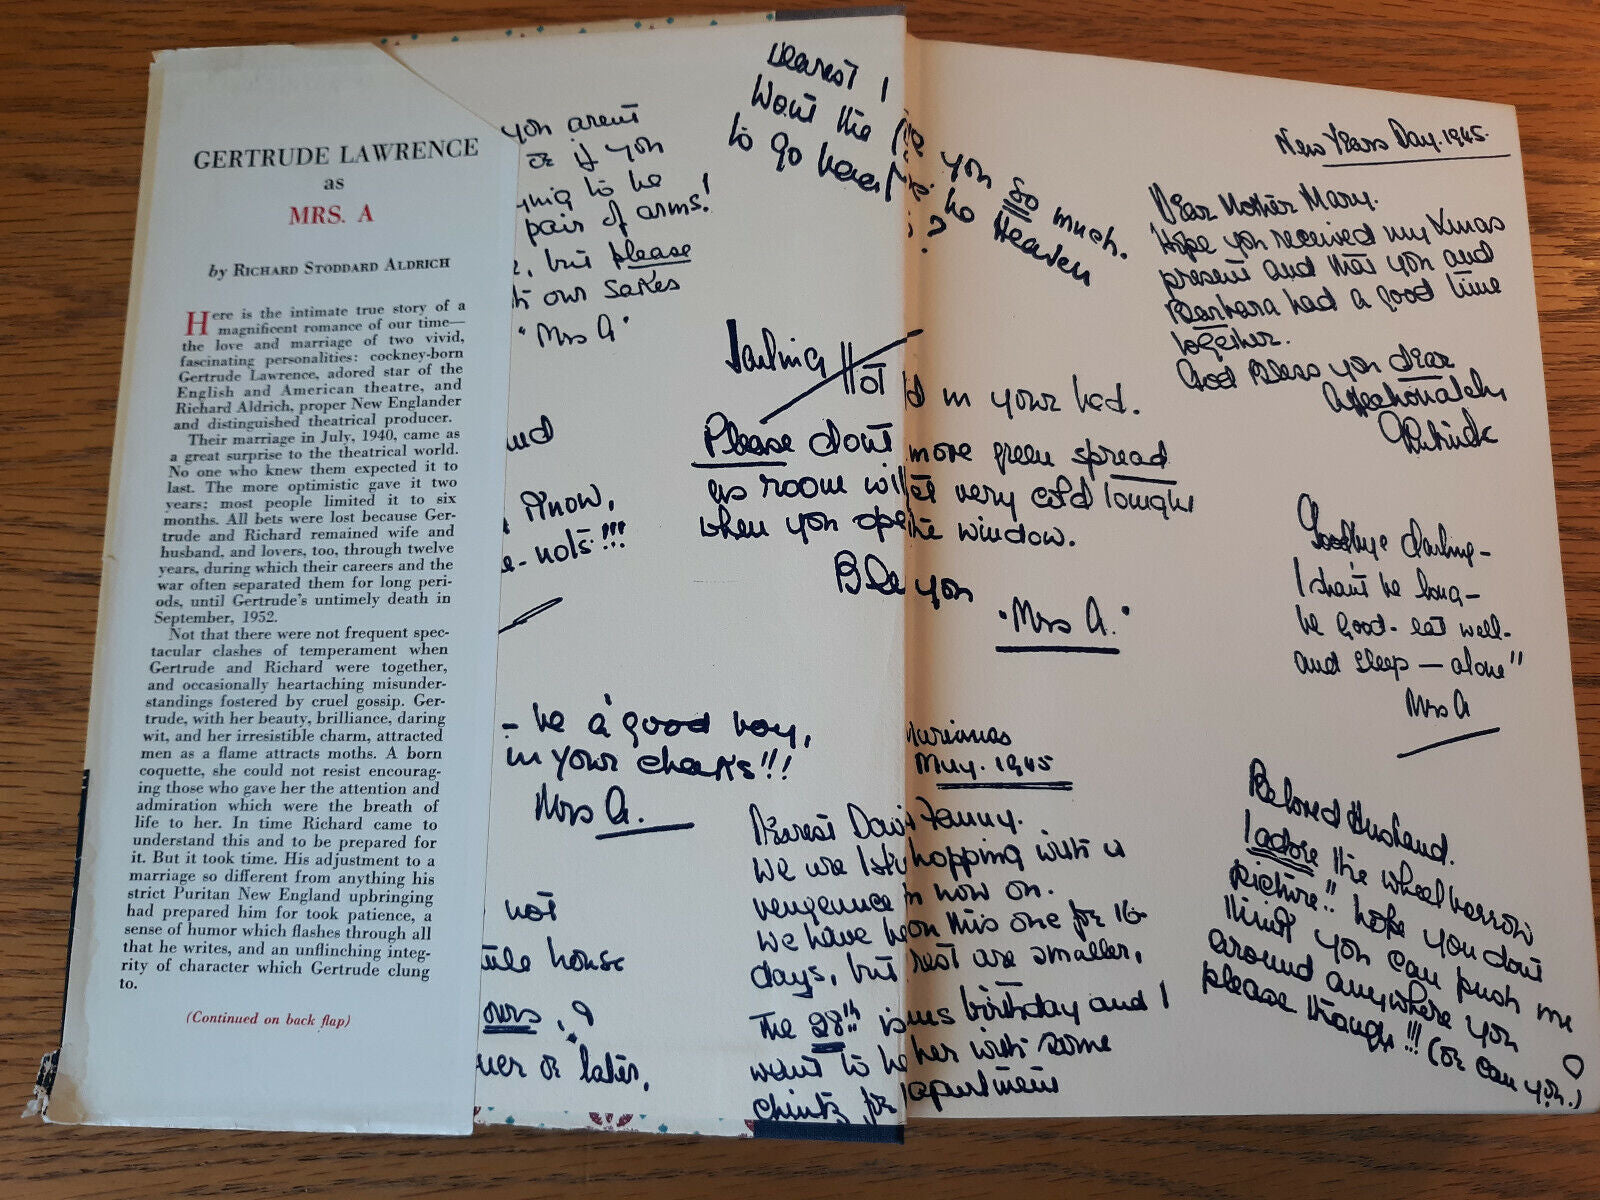 GERTRUDE LAWRENCE
as
MRS. A
by RICHARD STODDARD ALDRICH
Here is the intimate true story of a
magnificent romance of our time—
the love and marriage of two vivid,
fascinating personalities: cockney-born
Gertrude Lawrence, adored star of the
English and American theatre, and
Richard Aldrich, proper New Englander
and distinguished theatrical producer.
Their marriage in July, 1940, came as
a great surprise to the theatrical world.
No one who knew them expected it to
last. The more optimistic gave it two
years; most people limited it to six
months. All bets were lost because Ger-
trude and Richard remained wife and
husband, and lovers, too, through twelve
years, during which their careers and the
war often separated them for long peri-
ods, until Gertrude's untimely death in
September, 1952.
Not that there were not frequent spec-
tacular clashes of temperament when
Gertrude and Richard were together,
and occasionally heartaching misunder-
standings fostered by cruel gossip. Ger-
trude, with her beauty, brilliance, daring
wit, and her irresistible charm, attracted
men as a flame attracts moths. A born
coquette, she could not resist encourag-
ing those who gave her the attention and
admiration which were the breath of
life to her. In time Richard came to
understand this and to be prepared for
it. But it took time. His adjustment to a
marriage so different from anything his
strict Puritan New England upbringing
had prepared him for took patience, a
sense of humor which flashes through all
that he writes, and an unflinching integ-
rity of character which Gertrude clung
to.
(Continued on back flap)
you arent
or if you
ying to be
pair of arms!
, but please
our sakes
"Mrs A"
know,
e-nots!!!
- be a good boy,
in your cheques!!!
Mrs A.
not
ttle house
ours, ?
ner or later,
Dearest I
Want the
to go
you so much.
to Heaven
?
Darling Hot
ld in your bed.
Please dont more green spread
as room will get very cold tonight
when you open the window.
Bless you
"Mrs A."
Marianas
May. 1945
Dearest David Fanny.
We are hopping with a
vengeance now on.
We have been on this one for 16
days, but rest are smaller.
The 28th is birthday and I
want to her with some
chintz for apartment
New Years Day. 1945.
Dear Mother Mary.
Hope you received my Xmas
present and that you and
Barbara had a good time
together.
God Bless you dear
Affectionately
Gertrude
Goodbye darling -
I shan't be long -
be good - eat well -
and sleep — alone"
Mrs A
Beloved Husband.
I adore the wheelbarrow
picture!! hope you dont
think you can push me
around anywhere you
please though!!! (or can you?)